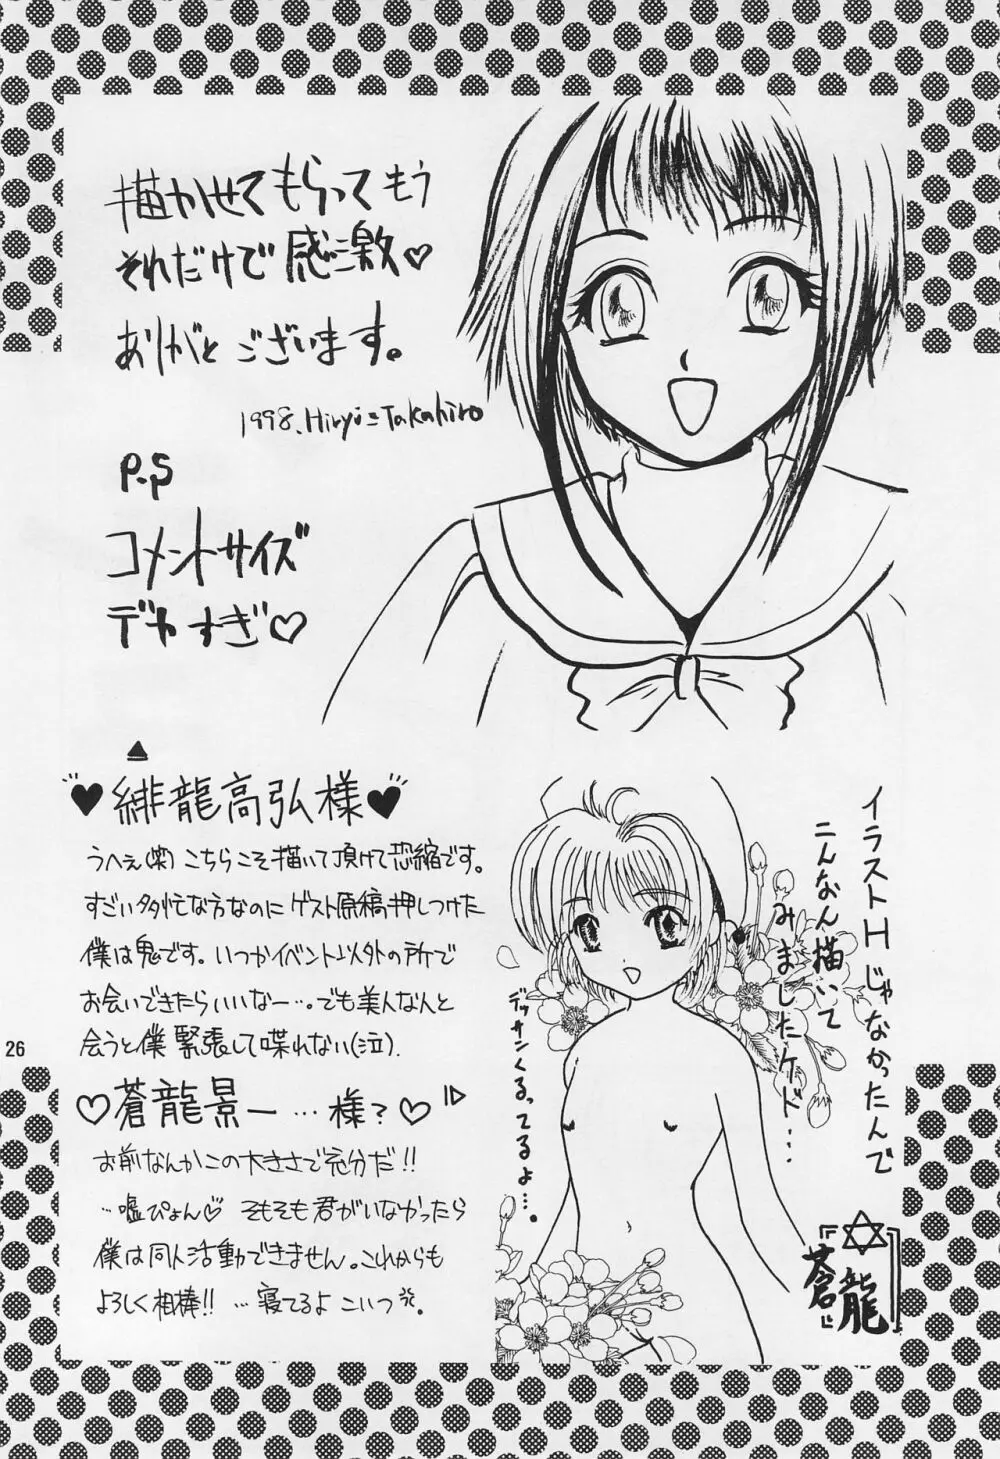 描かせてもらってもう
それだけで感激♡
ありがとございます。
1998. Hiryu Takahiro
P.S
コメントサイズ
デカすぎ♡
緋龍高弘様
うへぇ(笑) こちらこそ描いて頂けて恐縮です。
すごい多忙な方なのにゲスト原稿押しつけた
僕は鬼です。いつかイベント以外の所で
お会いできたらいいなー…。でも美人な人と
会うと僕緊張して喋れない(泣).
♡蒼龍景一…様?♡
お前なんかこの大きさで充分だ!!
…嘘ぴょん♡ そもそも君がいなかったら
僕は同人活動できません。これからも
よろしく相棒!! …寝てるよこいつ
イラストHじゃなかったんで
こんなん描いて
みましたケド…
デッサンくるってるよ…。
『蒼龍』
26